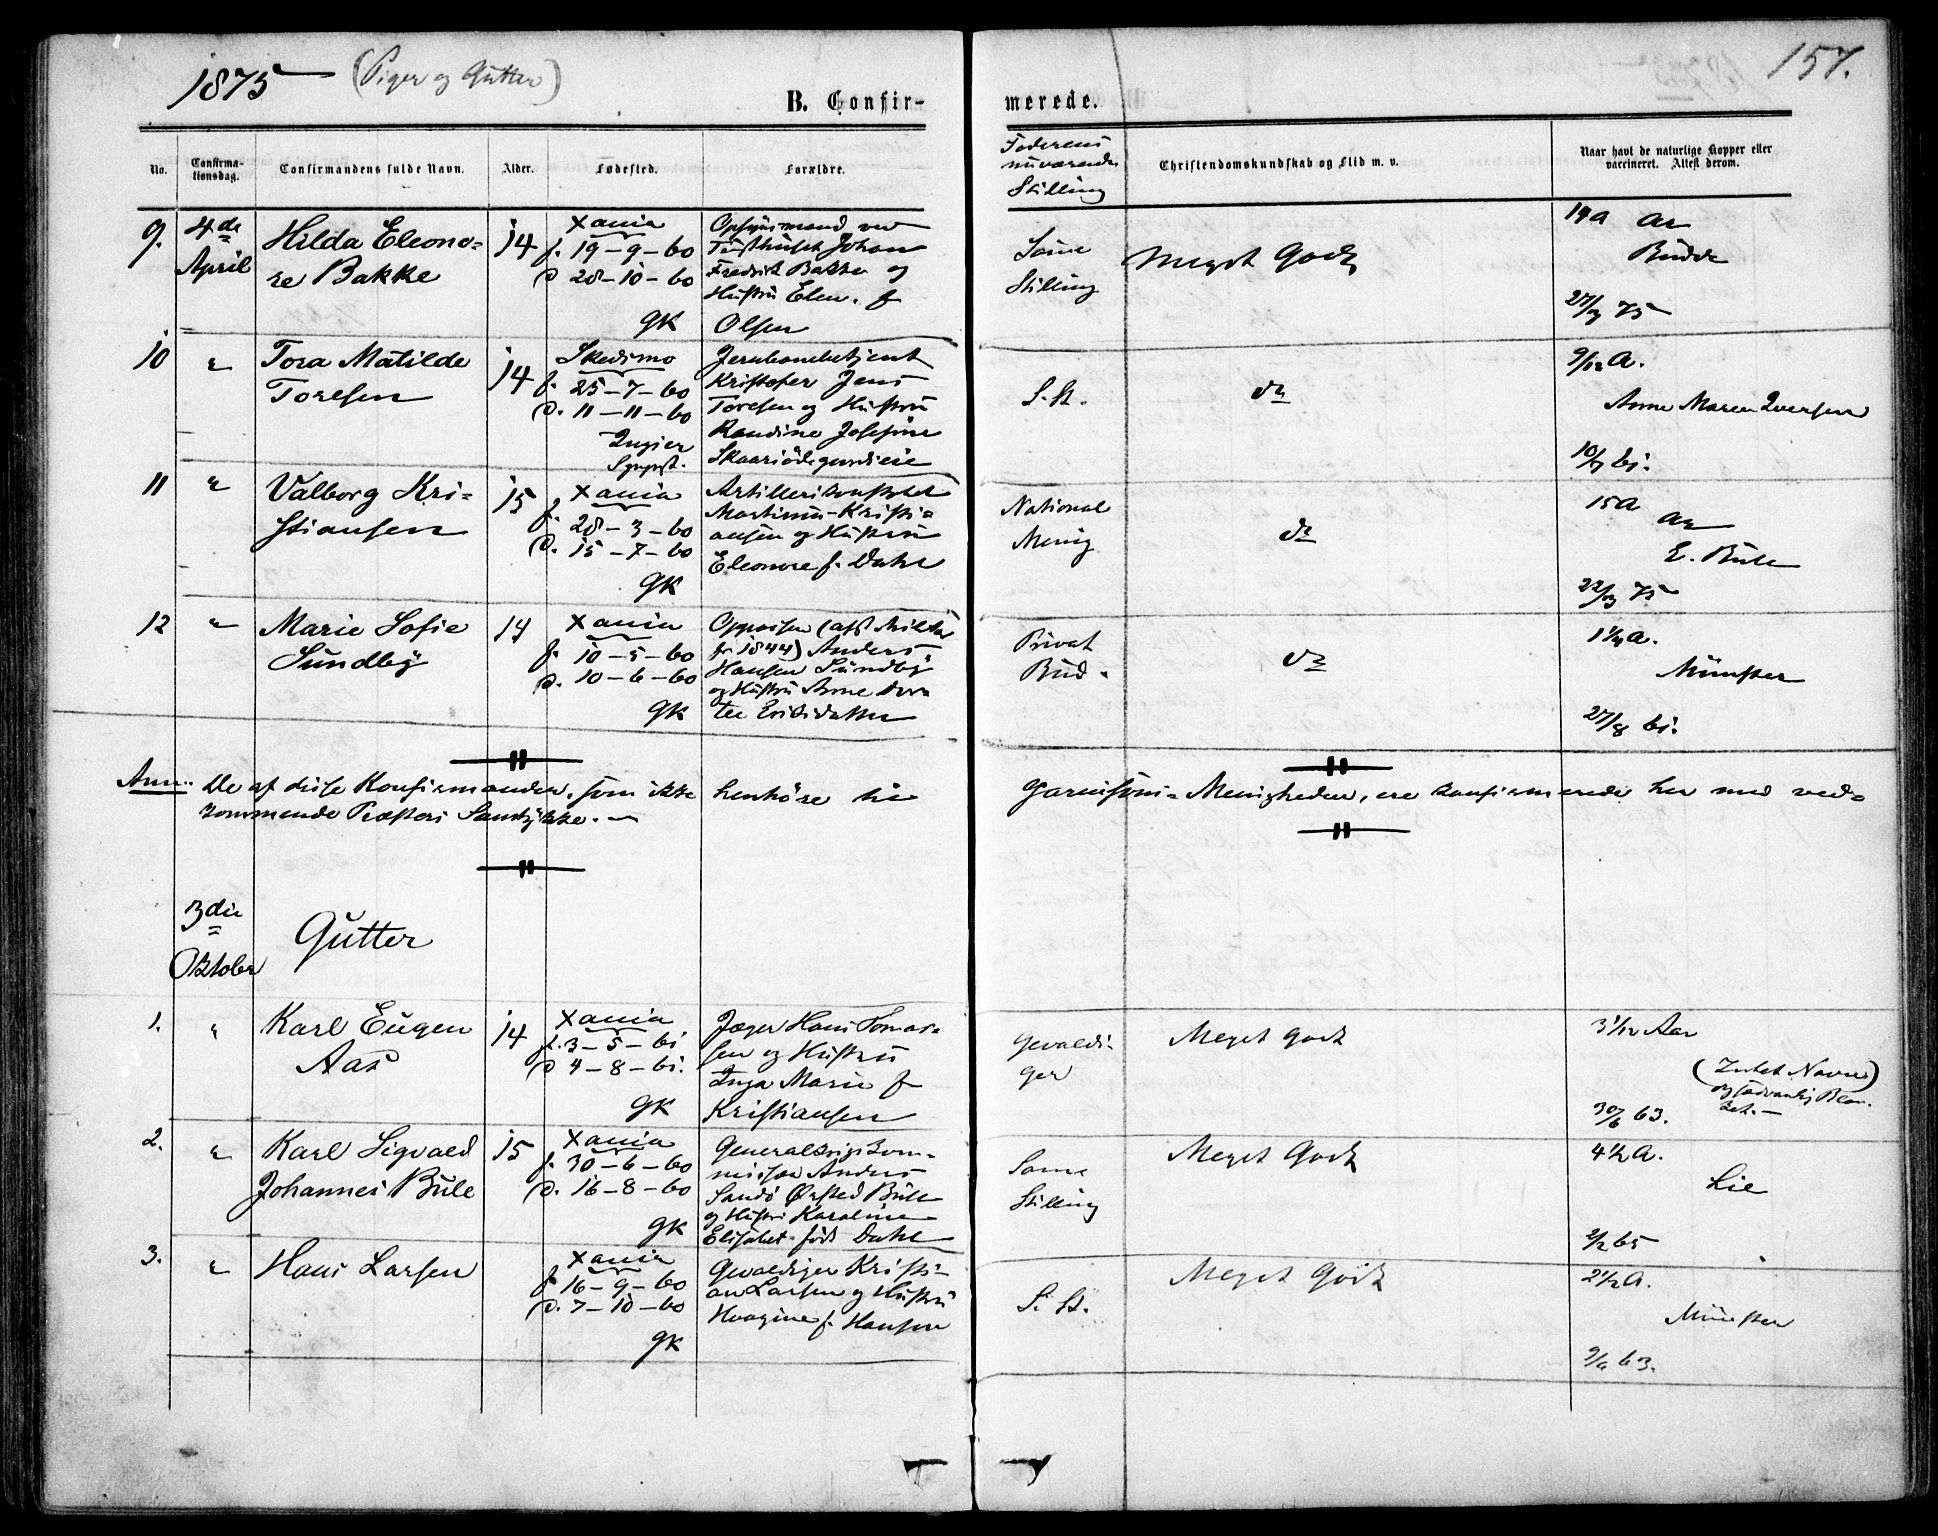 1875 (Piger og Gutter)
157.
B. Confir-
merede.
No.
Confirma-
tionsdag.
Confirmandens fulde Navn.
Alder.
Fødested.
Forældre.
Faderens
nuværende
Stilling
Christendomskundskab og Flid m. v.
Naar havt de naturlige Kopper eller
vaccineret. Attest derom.
9.
4de
April
Hilda Eleono-
re Bakke
14
Xania
f. 19-9-60
d 28-10-60
GK
Opsynsmand ved
Johan
Fredrik Bakke og
Hustru Elen. f
Olsen
Same
Stilling
Meget Godt
14 a
Budde
27/3 75
10
"
Tora Matilde
Toresen
14
Skedsmo
f. 25-7-60
d. 11-11-60
Jernbanebetjent
Kristofer Jens
Toresen og Hustru
Randine Josefine
S. St.
do
9/12 A.
Anne Maren Iversen
10/7 61.
11
"
Valborg Kri-
stiansen
15
Xania
f. 28-3-60
d. 15-7-60
GK
Artillerikonstabel
Martinus Kristi-
ansen og Hustru
Eleonore f. Dahl
National
Menig
do
15 a
E. Bull
22/3 75
12
"
Marie Sofie
Sundby
14
Xania
f. 10-5-60
d. 10-6-60
GK
fri 1844) Anders
Hansen Sundby
og Hustru Anne Doro-
tee
Privat
Bud.
do
1 1/4 A.
Münster
27/8 61.
Anm. De af disse Konfirmander, som ikke henhöre til Garnisons-Menigheden, ere konfirmerede her med ved-
kommende Præsters Samtykke.
3die
Oktober
Gutter
1.
"
Karl Eugen
Aas
14
Xania
f. 3-5-61
d 4-8-61.
GK
Jæger Hans Tomas-
sen og Hustru
Inga Marie f
Kristiansen
Gevaldi-
ger
Meget godt
3 1/12 Aar
(Intet Navn)
30/6 63.
2.
"
Karl Sigvald
Johannes Bull
15
Xania
f. 30-6-60
d. 16-8-60
GK
Generalkrigskom-
missær Anders
Sandö Ørsted Bull
og Hustru Karoline
Elisabet født Dahl
Same
Stilling
Meget Godt
4 1/2 A.
Lie
2/2 65
3.
"
Hans Larsen
Xania
f 16-9-60
d. 7-10-60
GK
Gevaldiger Kristi-
an Larsen og Hustru
f. Hansen
S. St.
Meget Godt
2 1/2 A.
Münster
63.